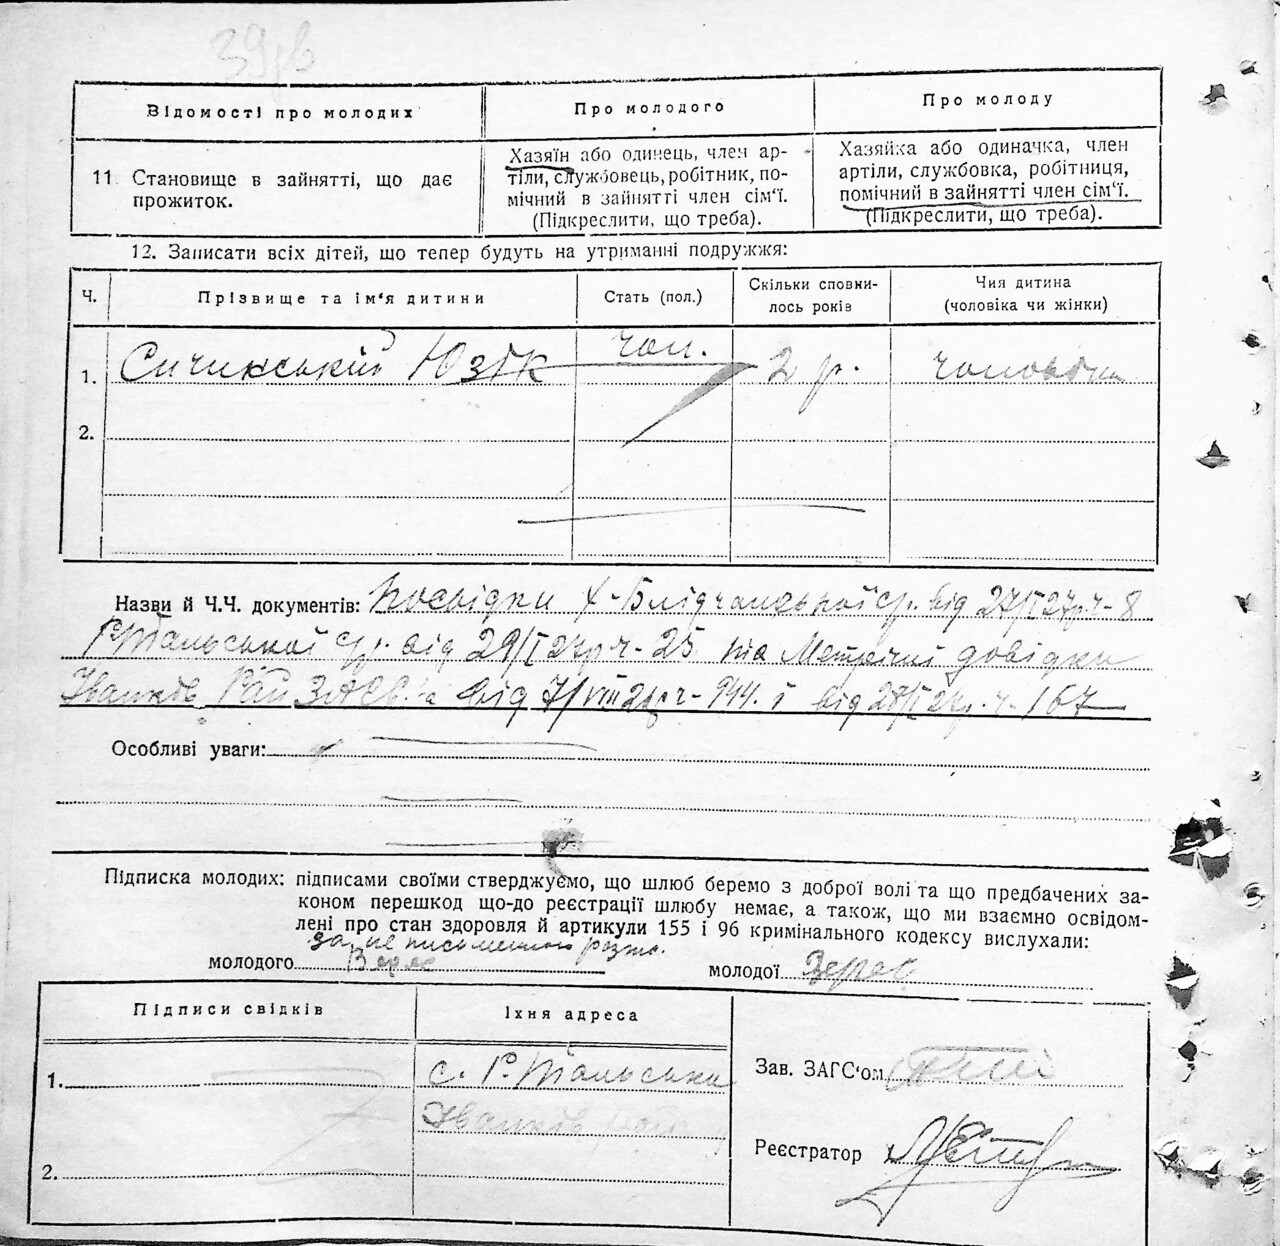 39зв
Відомості про молодих
Про молодого
Про молоду
11. Становище в зайнятті, що дає
прожиток.
Хазяїн або одинець, член ар-
тіли, службовець, робітник, по-
мічний в зайнятті член сім'ї.
(Підкреслити, що треба).
Хазяйка або одиначка, член
артіли, службовка, робітниця,
помічний в зайнятті член сім'ї.
(Підкреслити, що треба).
12. Записати всіх дітей, що тепер будуть на утриманні подружжя:
Ч.
Прізвище та ім'я дитини
Стать (пол.)
Скільки сповни-
лось років
Чия дитина
(чоловіка чи жінки)
1. Сичикський Юзік чол. 2 р. чоловіка
2.
Назви й Ч.Ч. документів: Посвідки від 27/I 27р ч-8
Р.Тальської с/р. від 29/I 27р ч-25 та Метричні довідки
Іванків Рай ЗАГСа від 7/VIII ч-944. і від 28/I 27р. ч-167
Особливі уваги:
Підписка молодих: підписами своїми стверджуємо, що шлюб беремо з доброї волі та що предбачених за-
коном перешкод що-до реєстрації шлюбу немає, а також, що ми взаємно освідом-
лені про стан здоровля й артикули 155 і 96 кримінального кодексу вислухали:
за не письменного розпс.
молодого
молодої
Підписи свідків
Їхня адреса
1.
с. Р.Тальська
Іванків
2.
Зав. ЗАГС'ом
Реєстратор